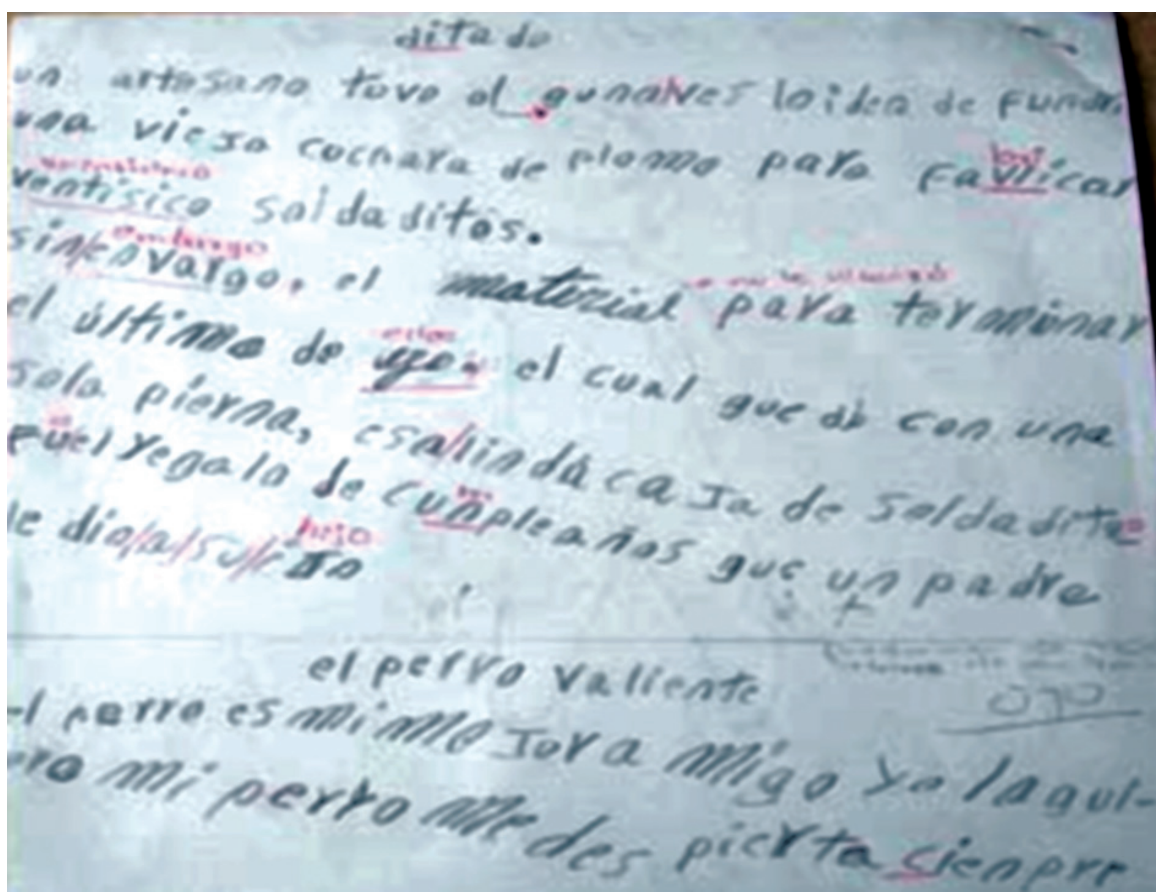 ditado
un artesano tuvo al gunaves la idea de fundi
una vieja cuchara de plomo para favricar
bri
ventisico saldaditos.
embargo
sin envargo, el material para terminar
el último de eyo. el cual quedó con una
ellos
sola pierna, esa lindа caja de soldadito
fue l regalo de cunpleaños que un padre
m
le dio a su ijo
hijo
el perro valiente
el perro es mi mejor amigo yo la qui-
ero mi perro me des pierta sienpre